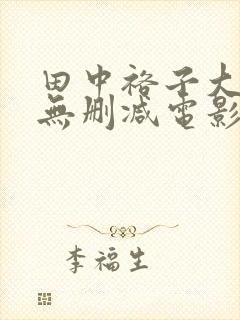 田中裕子大
無删减電影
李福生